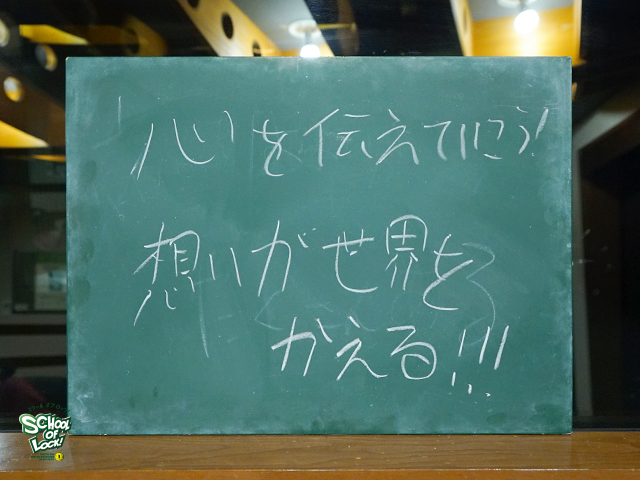 心を伝えていこう!
想いが世界を
かえる!!!
SCHOOL
OF
LOCK!